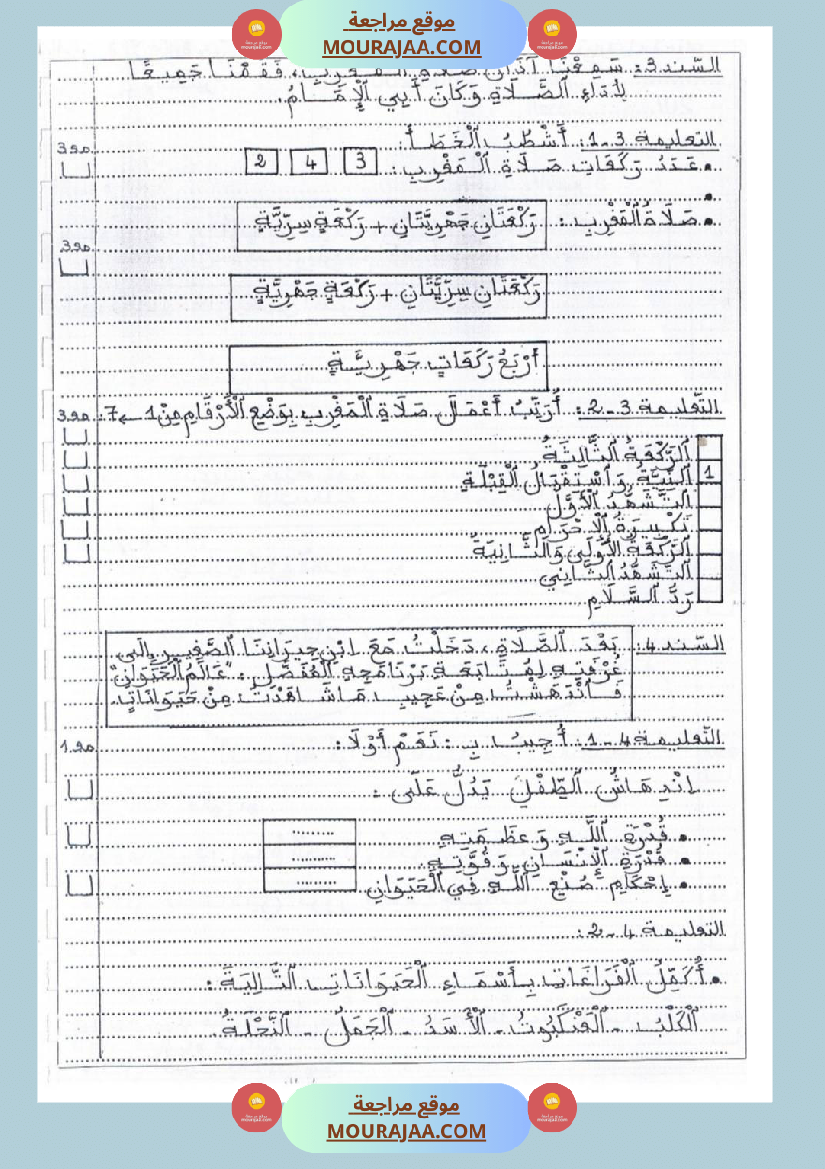 موقع مراجعة
MOURAJAA.COM
السّند 3: سَمِعْنَا آذَانَ صَلَاةِ الْمَغْرِبِ، فَقُمْنَا جَمِيعًا
لِأَدَاءِ الصَّلَاةِ وَكَانَ أَبِي الْإِمَامُ.
التعليمة 3-1: أَشْطُبُ الْخَطَأَ:
مع 3
• عَدَدُ رَكَعَاتِ صَلَاةِ الْمَغْرِبِ: 3 4 2
•
• صَلَاةُ الْمَغْرِبِ: رَكْعَتَانِ جَهْرِيَّتَانِ + رَكْعَةٍ سِرِّيَّةٍ
مع 3
رَكْعَتَانِ سِرِّيَّتَانِ + رَكْعَةٍ جَهْرِيَّةٍ
أَرْبَعُ رَكَعَاتٍ جَهْرِيَّةٍ
التّعليمة 3-2: أُرَتِّبُ أَعْمَالَ صَلَاةِ الْمَغْرِبِ بِوَضْعِ الْأَرْقَامِ مِنْ 1 ← 7:
مع 3
الرَّكْعَةُ الثَّالِثَةُ
1 النِّيَّةُ وَاسْتِقْبَالُ الْقِبْلَةِ
التَّشَهُّدُ الْأَوَّلُ
تَكْبِيرَةُ الْإِحْرَامِ
الرَّكْعَةُ الْأُولَى وَالثَّانِيَةُ
التَّشَهُّدُ الثَّانِي
رَدُّ السَّلَامِ
السّند 4: بَعْدَ الصَّلَاةِ، دَخَلْتُ مَعَ ابْنِ جِيرَانِنَا الصَّغِيرِ إِلَى
غُرْفَتِهِ لِمُتَابَعَةِ بَرْنَامَجِهِ الْمُفَضَّلِ: "عَالَمُ الْحَيَوَانِ"
فَانْدَهَشْتُ مِنْ عَجِيبِ مَا شَاهَدْتُ مِنْ حَيَوَانَاتٍ.
التّعليمة 4-1: أُجِيبُ بِـ: نَعَمْ أَوْ لَا:
مع 1
انْدِهَاشُ الطِّفْلِ يَدُلُّ عَلَى:
• قُدْرَةِ اللَّهِ وَعَظَمَتِهِ ..........
• قُدْرَةِ الْإِنْسَانِ وَقُوَّتِهِ ..........
• إِحْكَامِ صُنْعِ اللَّهِ فِي الْحَيَوَانِ ..........
التعليمة 4-2:
• أُكَمِّلُ الْفَرَاغَاتِ بِأَسْمَاءِ الْحَيَوَانَاتِ التَّالِيَةَ:
الْكَلْبُ - الْعَنْكَبُوتُ - الْأَسَدُ - الْجَمَلُ - النَّحْلَةُ
موقع مراجعة
MOURAJAA.COM